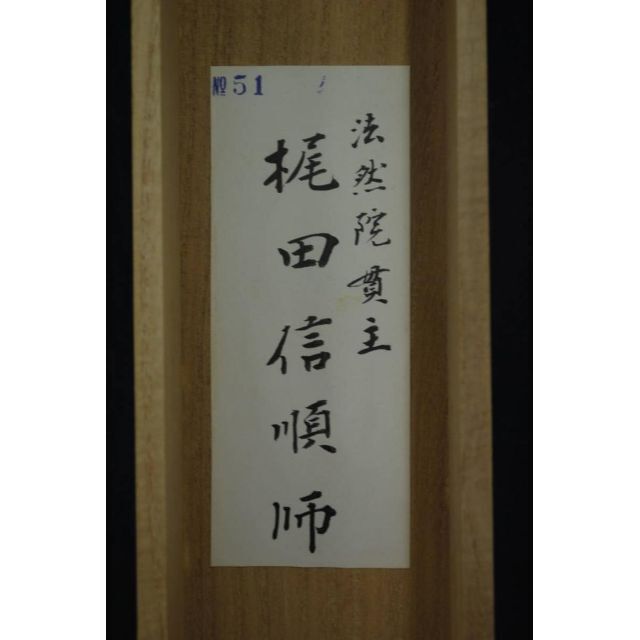 №51
法然院貫主
梶田信順師